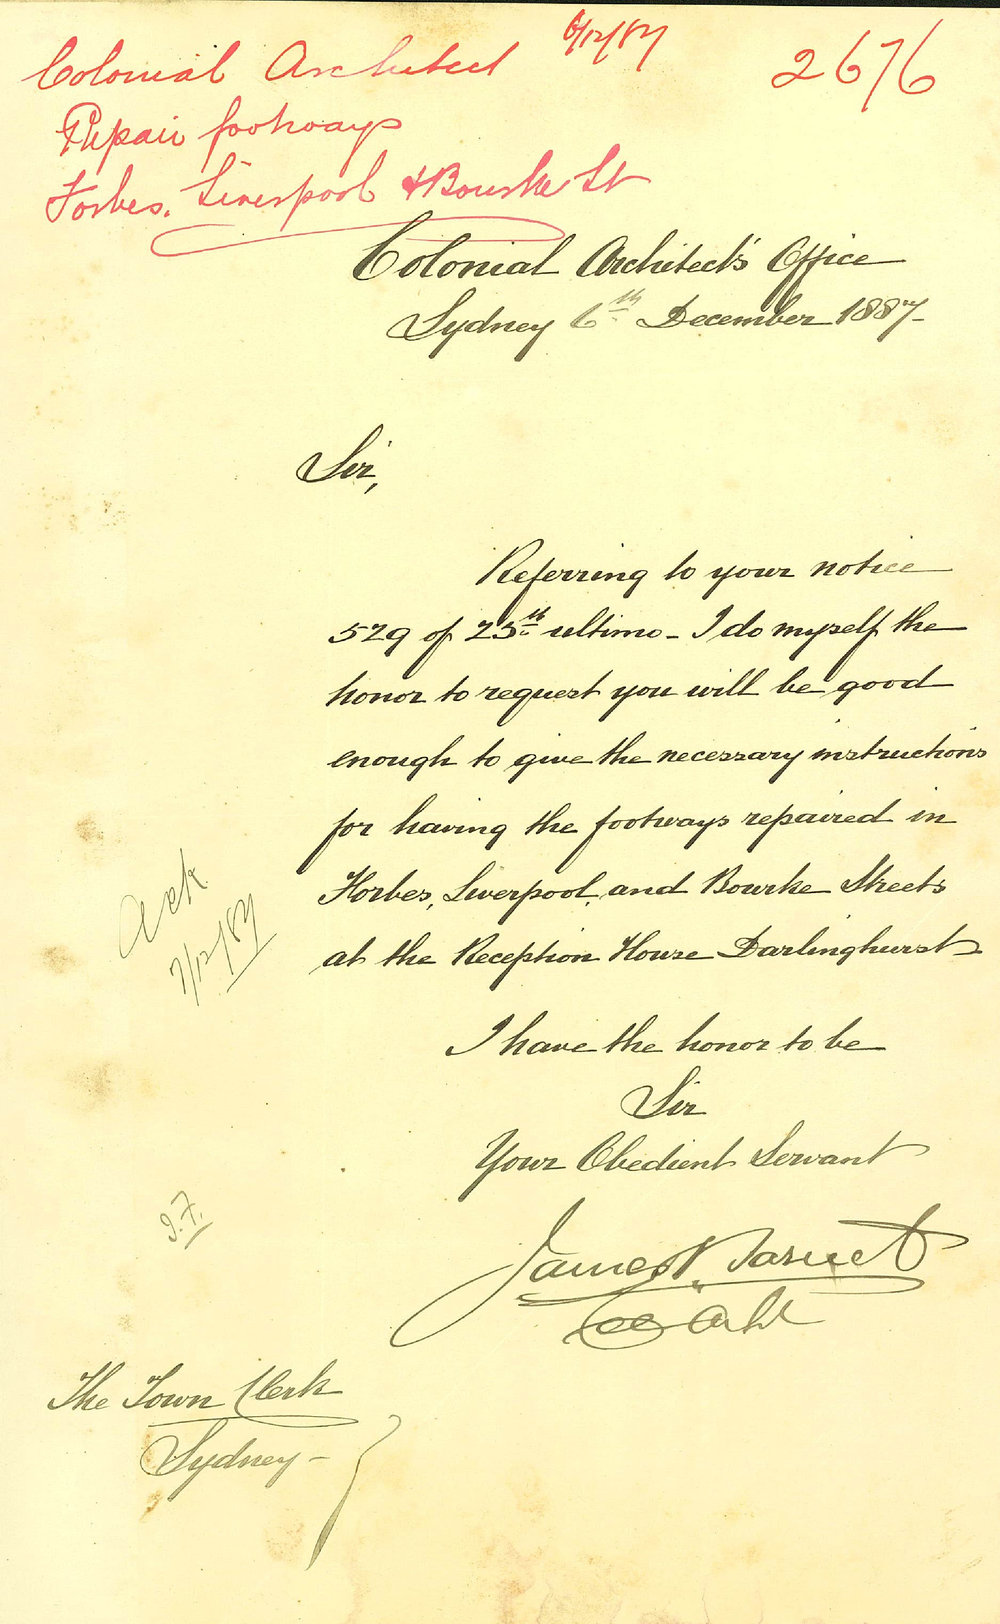 Colonial Architect 6/12/87 2676
Repair footways
Forbes, Liverpool & Bourke St
Colonial Architect's Office
Sydney 6th December 1887
Sir,
Referring to your notice
529 of 25th ultimo - I do myself the
honor to request you will be good
enough to give the necessary instructions
for having the footways repaired in
Forbes, Liverpool, and Bourke Streets
at the Reception House Darlinghurst
Ack
7/12/87
I have the honor to be
Sir
Your Obedient Servant
James Barnet
Col Archt
The Town Clerk
Sydney -